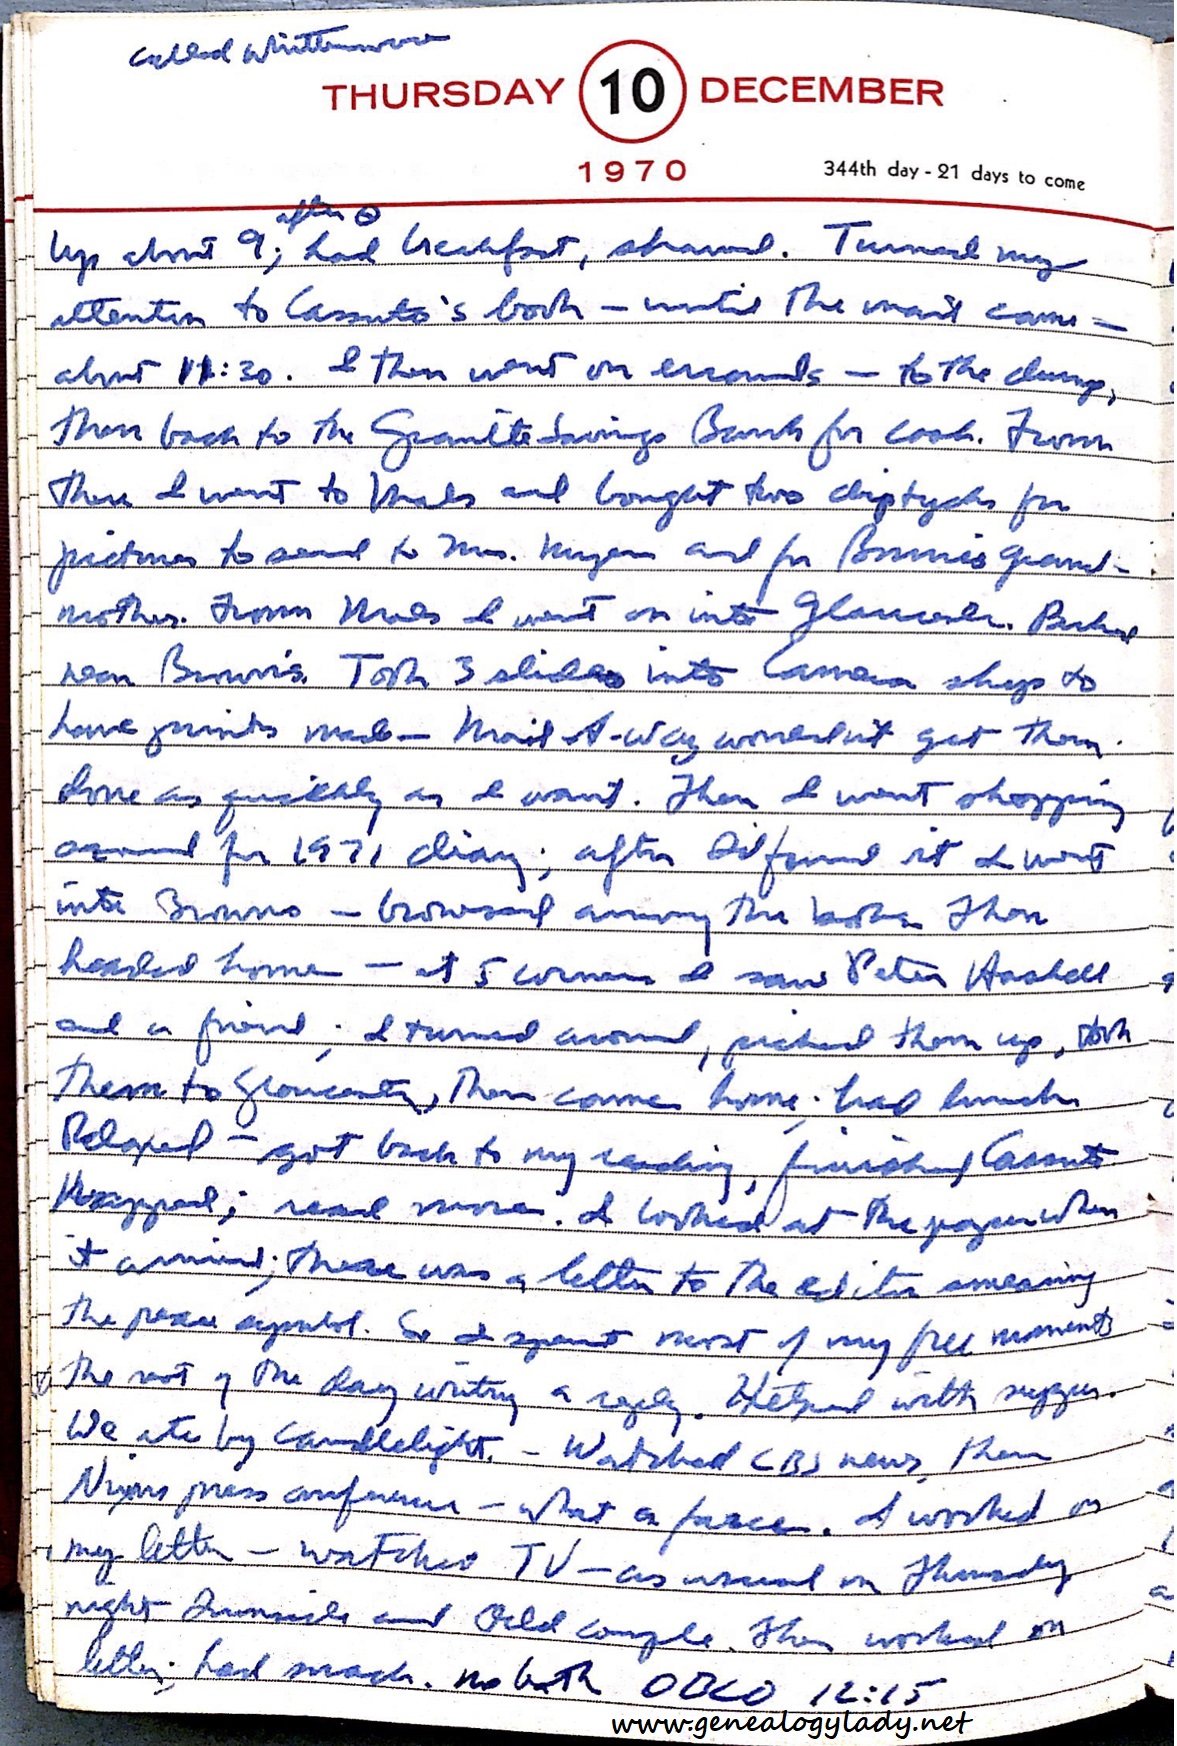 called Whittemore
THURSDAY 10 DECEMBER
1970
344th day - 21 days to come
after
Up about 9; had breakfast, shaved. Turned my
attention to Cassuto's book – until the mail came –
about 11:30. I then went on errands – to the dump,
then back to the Granite Savings Bank for cash. From
there I went to and bought two diptychs for
pictures to send to Mrs. and for Bonnie's grand-
mother. From I went on into Gloucester. Parked
near Brown's. Took 3 slides into Camera shop to
have prints made – Mail A-Way wouldn't get them
done as quickly as I want. Then I went shopping
around for 1971 diary; after I'd found it I went
into Browns – browsed among the books. Then
headed home – at 5 corners I saw Peter Haskell
and a friend; I turned around, picked them up, took
them to Gloucester, then came home; had lunch.
Relaxed – got back to my reading, finished Cassuto.
Napped; read more. I looked at the paper when
it arrived; there was a letter to the editor smearing
the peace symbol. So I spent most of my free moments
the rest of the day writing a reply. Helped with supper.
We ate by candlelight. – Watched CBS news, then
Nixon's press conference – what a farce. I worked on
my letter – watched TV – as usual on Thursday
night Ironside and Odd couple. Then worked on
letter; had snack. no bath ODCO 12:15
www.genealogylady.net